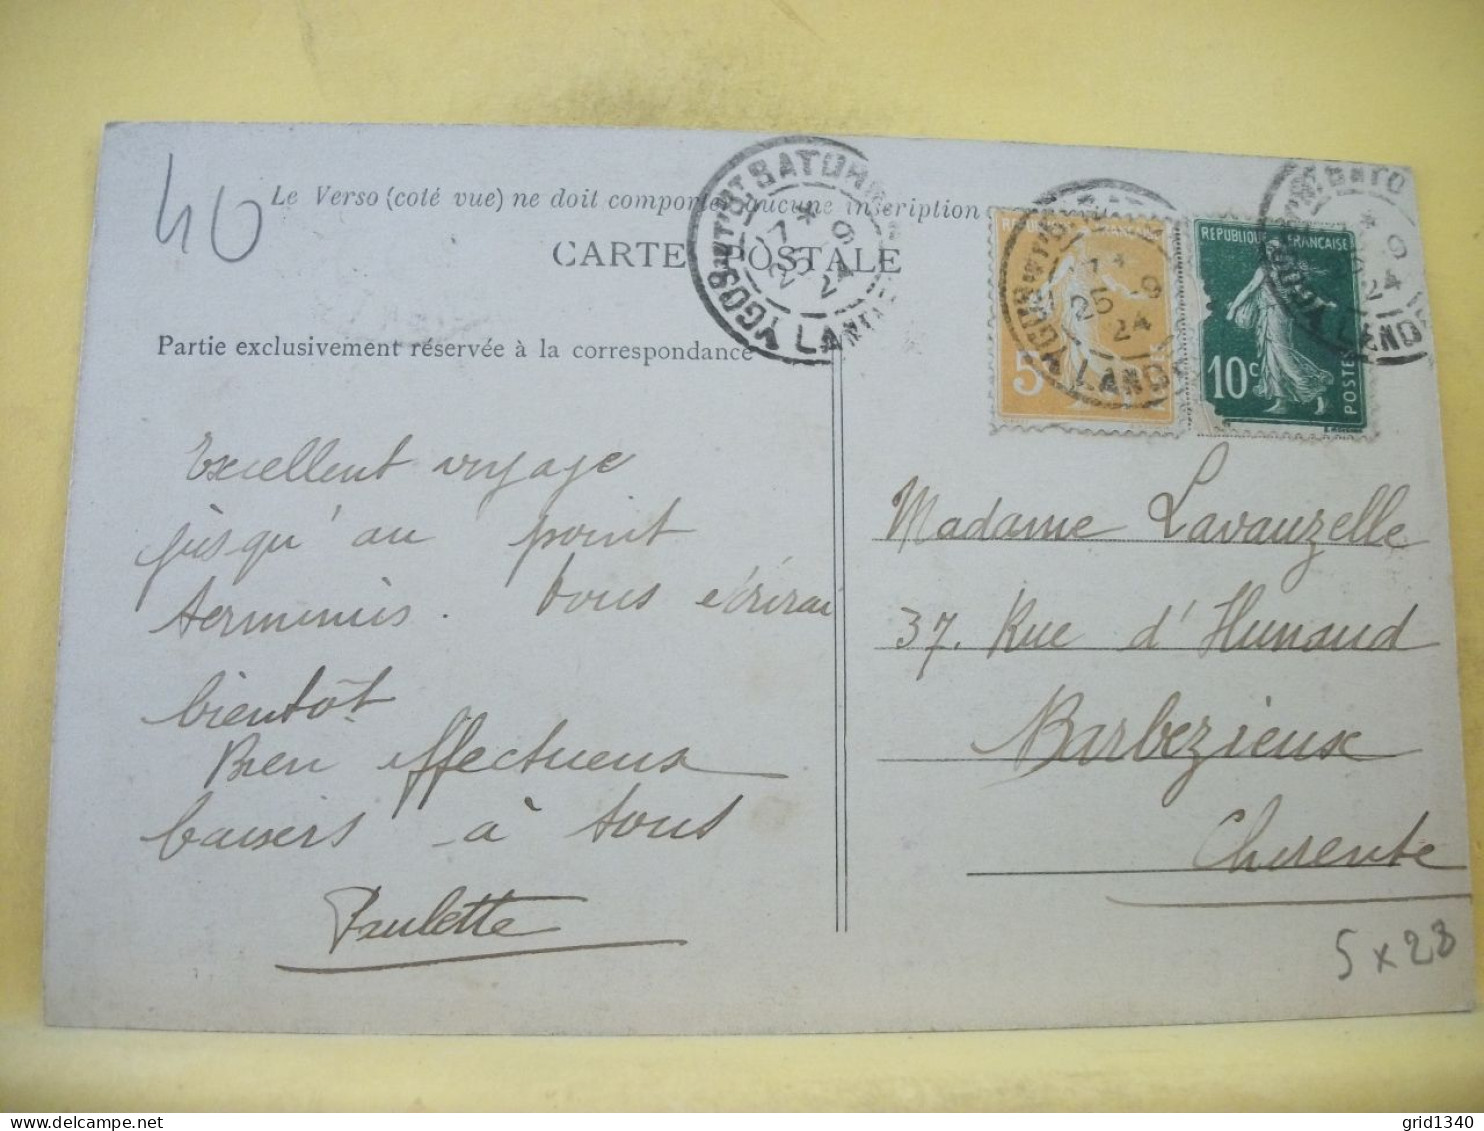 40
Le Verso (coté vue) ne doit comporter aucune inscription
CARTE POSTALE
Partie exclusivement réservée à la correspondance
YGOS-ST SATURNIN
17 * 25 9 24
LANDES
REPUBLIQUE FRANÇAISE
5c
REPUBLIQUE FRANÇAISE
10c
POSTES
Excellent voyage
jusqu'au point
terminus. Vous écrirai
bientôt
Bien affectueux
baisers à tous
Paulette
Madame Lavauzelle
37. Rue d'Hunaud
Barbezieux
Charente
5 x 28
grid1340